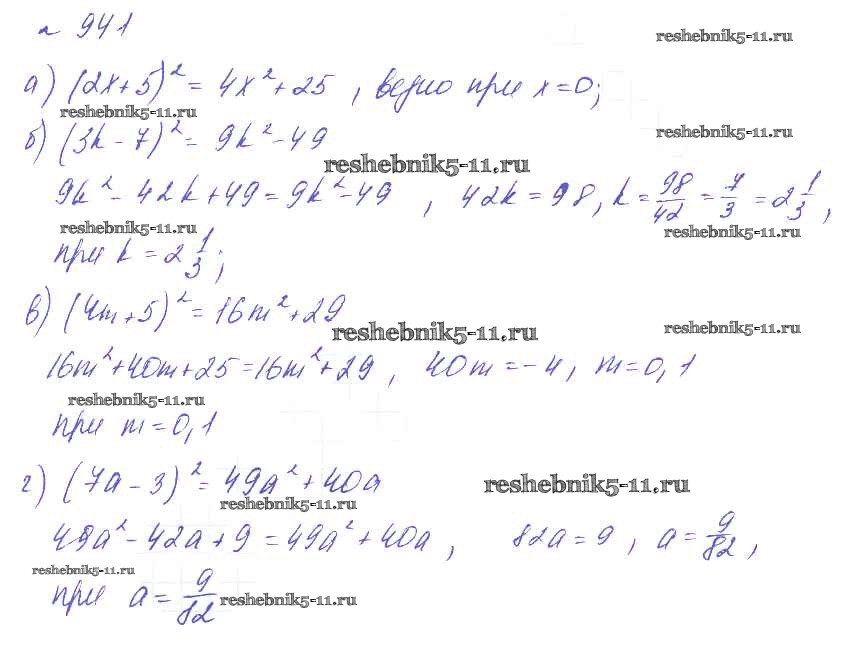 № 941
reshebnik5-11.ru
а) (2x+5)² = 4x²+25 , верно при x=0;
reshebnik5-11.ru
reshebnik5-11.ru
б) (3k-7)² = 9k²-49
reshebnik5-11.ru
9k²-42k+49=9k²-49 , 42k=98, k=98/42=7/3=2 1/3 ,
reshebnik5-11.ru
reshebnik5-11.ru
при k=2 1/3 ;
в) (4m+5)²=16m²+29
reshebnik5-11.ru
reshebnik5-11.ru
16m²+40m+25=16m²+29 , 40m=-4, m=0,1
reshebnik5-11.ru
при m=0,1
г) (7a-3)²=49a²+40a
reshebnik5-11.ru
reshebnik5-11.ru
49a²-42a+9=49a²+40a , 82a=9 , a=9/82 ,
reshebnik5-11.ru
при a=9/82
reshebnik5-11.ru